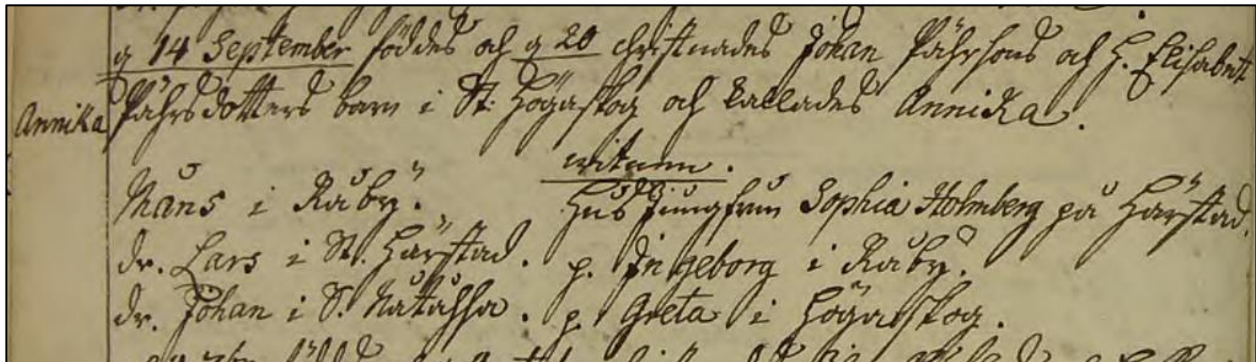 g 14 September föddes och g 20 christnades Johan Pährsons och H. Elisabett
Annika Pährsdotters barn i St: Högaskog och kallades Annika.
witnen.
Måns i Råby. Hus Jungfrun Sophia Holmberg på Härstad.
dr. Lars i St. Härstad. p. Ingeborg i Råby.
dr. Johan i S. p. Greta i Högaskog.